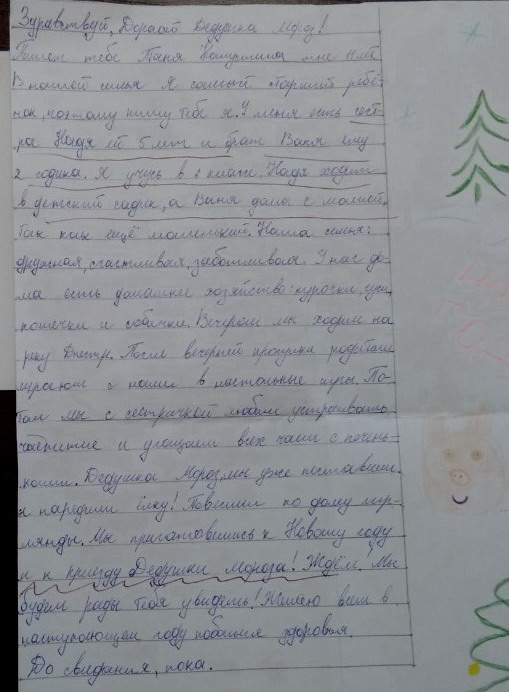 Здравствуй, Дорогой Дедушка Мороз!
Пишет тебе Таня мне лет
В нашей семье Я самый старший ребё-
нок, поэтому пишу тебе я. У меня есть сест-
ра Надя ей 5 лет и брат Ваня ему
2 годика. Я учусь в классе. Надя ходит
в детский садик, а Ваня дома с мамой.
так как ещё маленький. Наша семья:
дружная, счастливая, заботливая. У нас до-
ма есть домашнее хозяйство: курочки,
кошечки и собачки. Вечером мы ходим на
реку Днестр. После вечерней прогулки родители
играют с нами в настольные игры. По-
том мы с сестричкой любим устраивать
чаепитие и угощаем всех чаем с печень-
ками. Дедушка Мороз мы уже поставили
и нарядили ёлку! Повесили по дому гир-
лянды. Мы приготовились к Новому году
и к приезду Дедушки Мороза! Ждём. Мы
будем рады тебя увидеть! Желаю всем в
наступающем году побольше здоровья.
До свидания, пока.